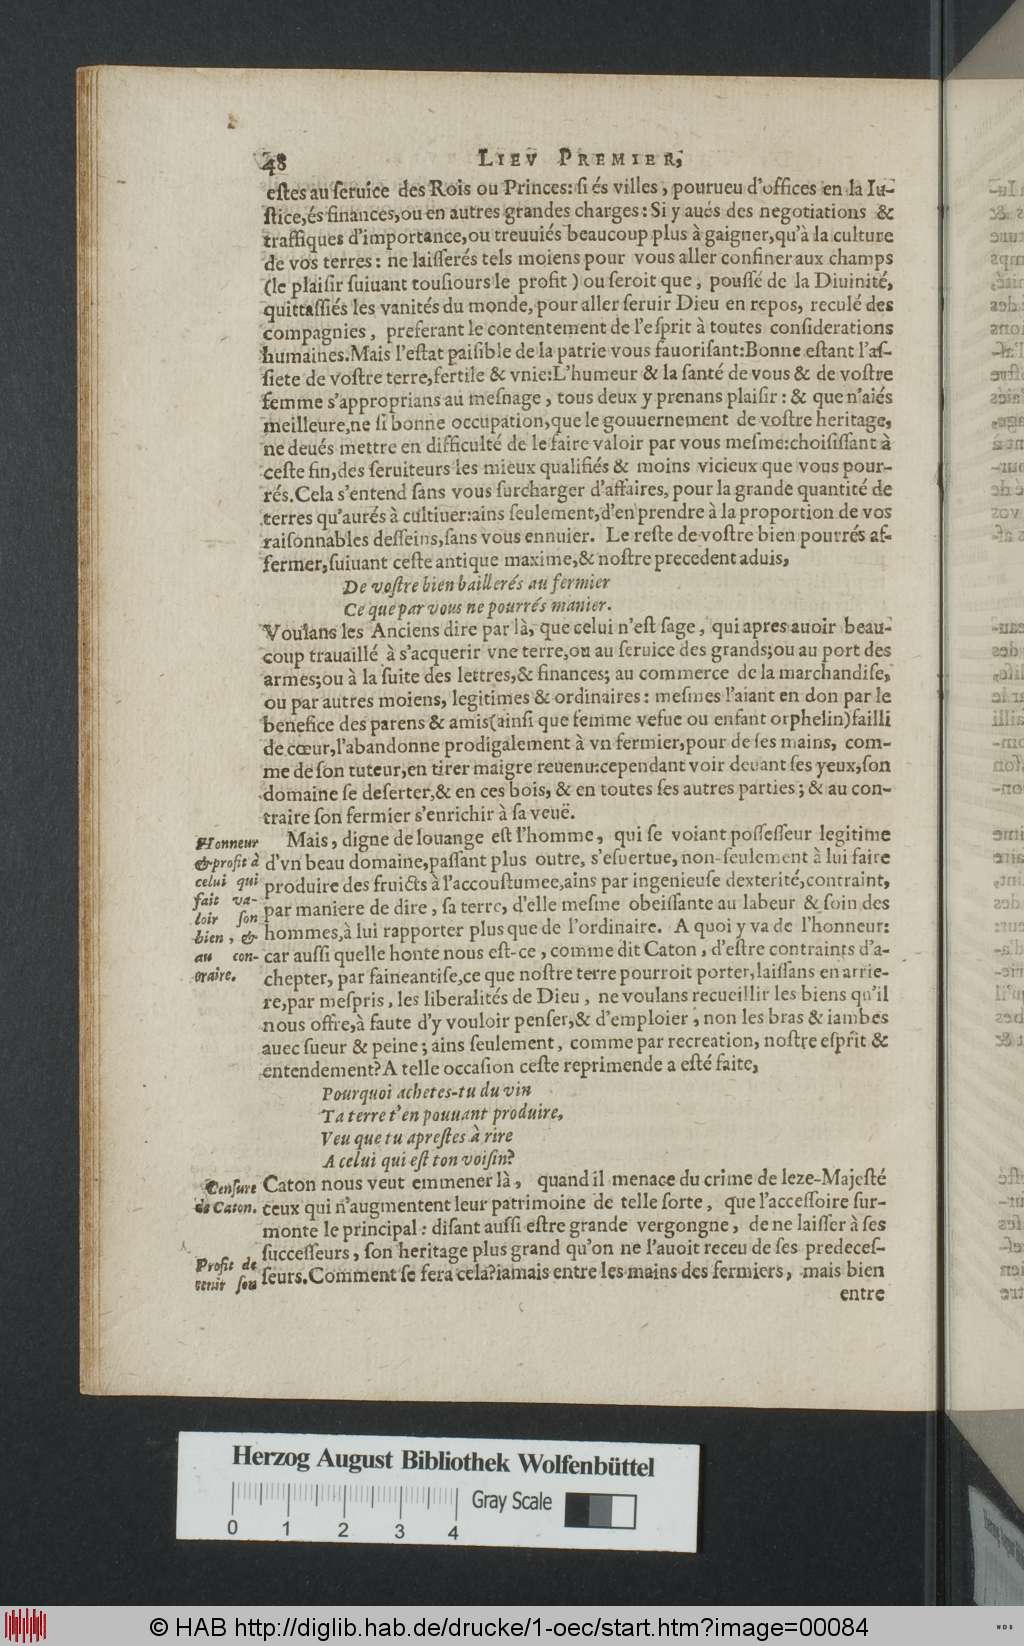 48
LIEV PREMIER,
eſtes au ſeruice des Rois ou Princes: ſi és villes, pourueu d'offices en la Iu-
ſtice, és finances, ou en autres grandes charges: Si y aués des negotiations &
traffiques d'importance, ou treuuiés beaucoup plus à gaigner, qu'à la culture
de vos terres: ne laiſſerés tels moiens pour vous aller confiner aux champs
(le plaiſir ſuiuant touſiours le profit) ou ſeroit que, pouſſé de la Diuinité,
quittaſſiés les vanités du monde, pour aller ſeruir Dieu en repos, reculé des
compagnies, preferant le contentement de l'eſprit à toutes conſiderations
humaines. Mais l'eſtat paiſible de la patrie vous fauoriſant: Bonne eſtant l'aſ-
ſiete de voſtre terre, fertile & vnie: L'humeur & la ſanté de vous & de voſtre
femme s'approprians au meſnage, tous deux y prenans plaiſir: & que n'aiés
meilleure, ne ſi bonne occupation, que le gouuernement de voſtre heritage,
ne deués mettre en difficulté de le faire valoir par vous meſme: choiſiſſant à
ceſte fin, des ſeruiteurs les mieux qualifiés & moins vicieux que vous pour-
rés. Cela s'entend ſans vous ſurcharger d'affaires, pour la grande quantité de
terres qu'aurés à cultiuer: ains ſeulement, d'en prendre à la proportion de vos
raiſonnables deſſeins, ſans vous ennuier. Le reſte de voſtre bien pourrés af-
fermer, ſuiuant ceſte antique maxime, & noſtre precedent aduis,
De voſtre bien baillerés au fermier
Ce que par vous ne pourrés manier.
Voulans les Anciens dire par là, que celui n'eſt ſage, qui apres auoir beau-
coup trauaillé à s'acquerir vne terre, ou au ſeruice des grands; ou au port des
armes; ou à la ſuite des lettres, & finances; au commerce de la marchandiſe,
ou par autres moiens, legitimes & ordinaires: meſmes l'aiant en don par le
benefice des parens & amis (ainſi que femme vefue ou enfant orphelin) failli
de cœur, l'abandonne prodigalement à vn fermier, pour de ſes mains, com-
me de ſon tuteur, en tirer maigre reuenu: cependant voir deuant ſes yeux, ſon
domaine ſe deſerter, & en ces bois, & en toutes ſes autres parties; & au con-
traire ſon fermier s'enrichir à ſa veuë.
Honneur
& profit à
celui qui
fait va-
loir ſon
bien, &
au con-
traire.
Mais, digne de louange eſt l'homme, qui ſe voiant poſſeſſeur legitime
d'vn beau domaine, paſſant plus outre, s'eſuertue, non-ſeulement à lui faire
produire des fruicts à l'accouſtumee, ains par ingenieuſe dexterité, contraint,
par maniere de dire, ſa terre, d'elle meſme obeiſſante au labeur & ſoin des
hommes, à lui rapporter plus que de l'ordinaire. A quoi y va de l'honneur:
car auſſi quelle honte nous eſt-ce, comme dit Caton, d'eſtre contraints d'a-
chepter, par faineantiſe, ce que noſtre terre pourroit porter, laiſſans en arrie-
re, par meſpris, les liberalités de Dieu, ne voulans recueillir les biens qu'il
nous offre, à faute d'y vouloir penſer, & d'emploier, non les bras & iambes
auec ſueur & peine; ains ſeulement, comme par recreation, noſtre eſprit &
entendement? A telle occaſion ceſte reprimende a eſté faite,
Pourquoi achetes-tu du vin
Ta terre t'en pouuant produire,
Veu que tu apreſtes à rire
A celui qui eſt ton voiſin?
Cenſure
de Caton.
Caton nous veut emmener là, quand il menace du crime de leze-Majeſté
ceux qui n'augmentent leur patrimoine de telle ſorte, que l'acceſſoire ſur-
monte le principal: diſant auſſi eſtre grande vergongne, de ne laiſſer à ſes
ſucceſſeurs, ſon heritage plus grand qu'on ne l'auoit receu de ſes predeceſ-
ſeurs. Comment ſe fera cela? iamais entre les mains des fermiers, mais bien
Profit de
tenir ſon
entre
Herzog August Bibliothek Wolfenbüttel
Gray Scale
0 1 2 3 4
© HAB http://diglib.hab.de/drucke/1-oec/start.htm?image=00084